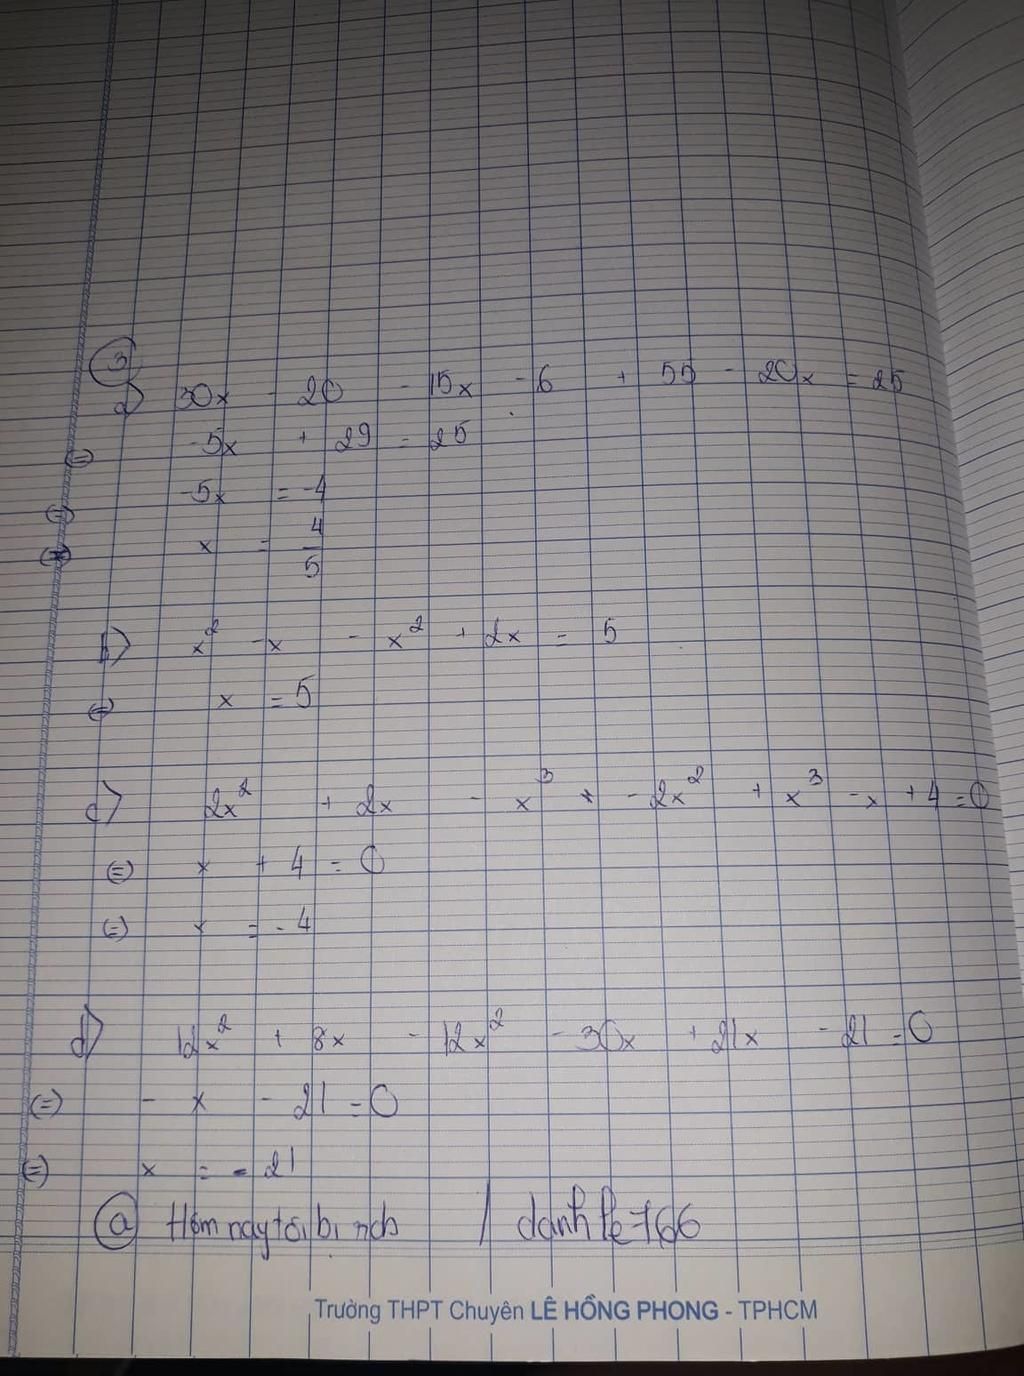 3
a) 30x - 20 - 15x - 6 + 55 - 20x = 25
(=) -5x + 29 = 25
(=) -5x = -4
(=) x = 4/5
b) x² - x - x² + 2x = 5
(=) x = 5
c) 2x² + 2x - x³ + - 2x² + x³ - x + 4 = 0
(=) x + 4 = 0
(=) x = -4
d) 12x² + 8x - 12x² - 30x + 21x - 21 = 0
(=) - x - 21 = 0
(=) x = -21
a Hôm nay tôi bị / danh
Trường THPT Chuyên LÊ HỒNG PHONG - TPHCM